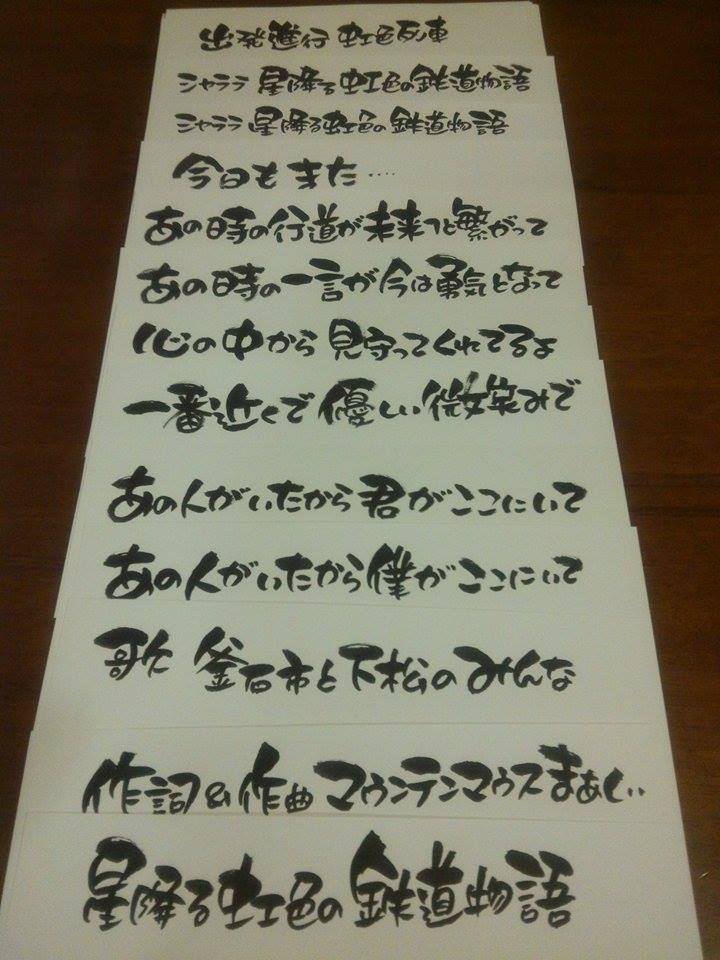 出発進行 虹色列車
シャララ 星降る虹色の鉄道物語
シャララ 星降る虹色の鉄道物語
今日もまた‥‥
あの時の行道が未来へと繋がって
あの時の一言が今は勇気となって
心の中から 見守ってくれてるよ
一番近くで 優しい微笑みで
あの人がいたから君がここにいて
あの人がいたから僕がここにいて
歌 釜石市と下松のみんな
作詞&作曲 マウンテンマウスまぁしぃ
星降る虹色の鉄道物語